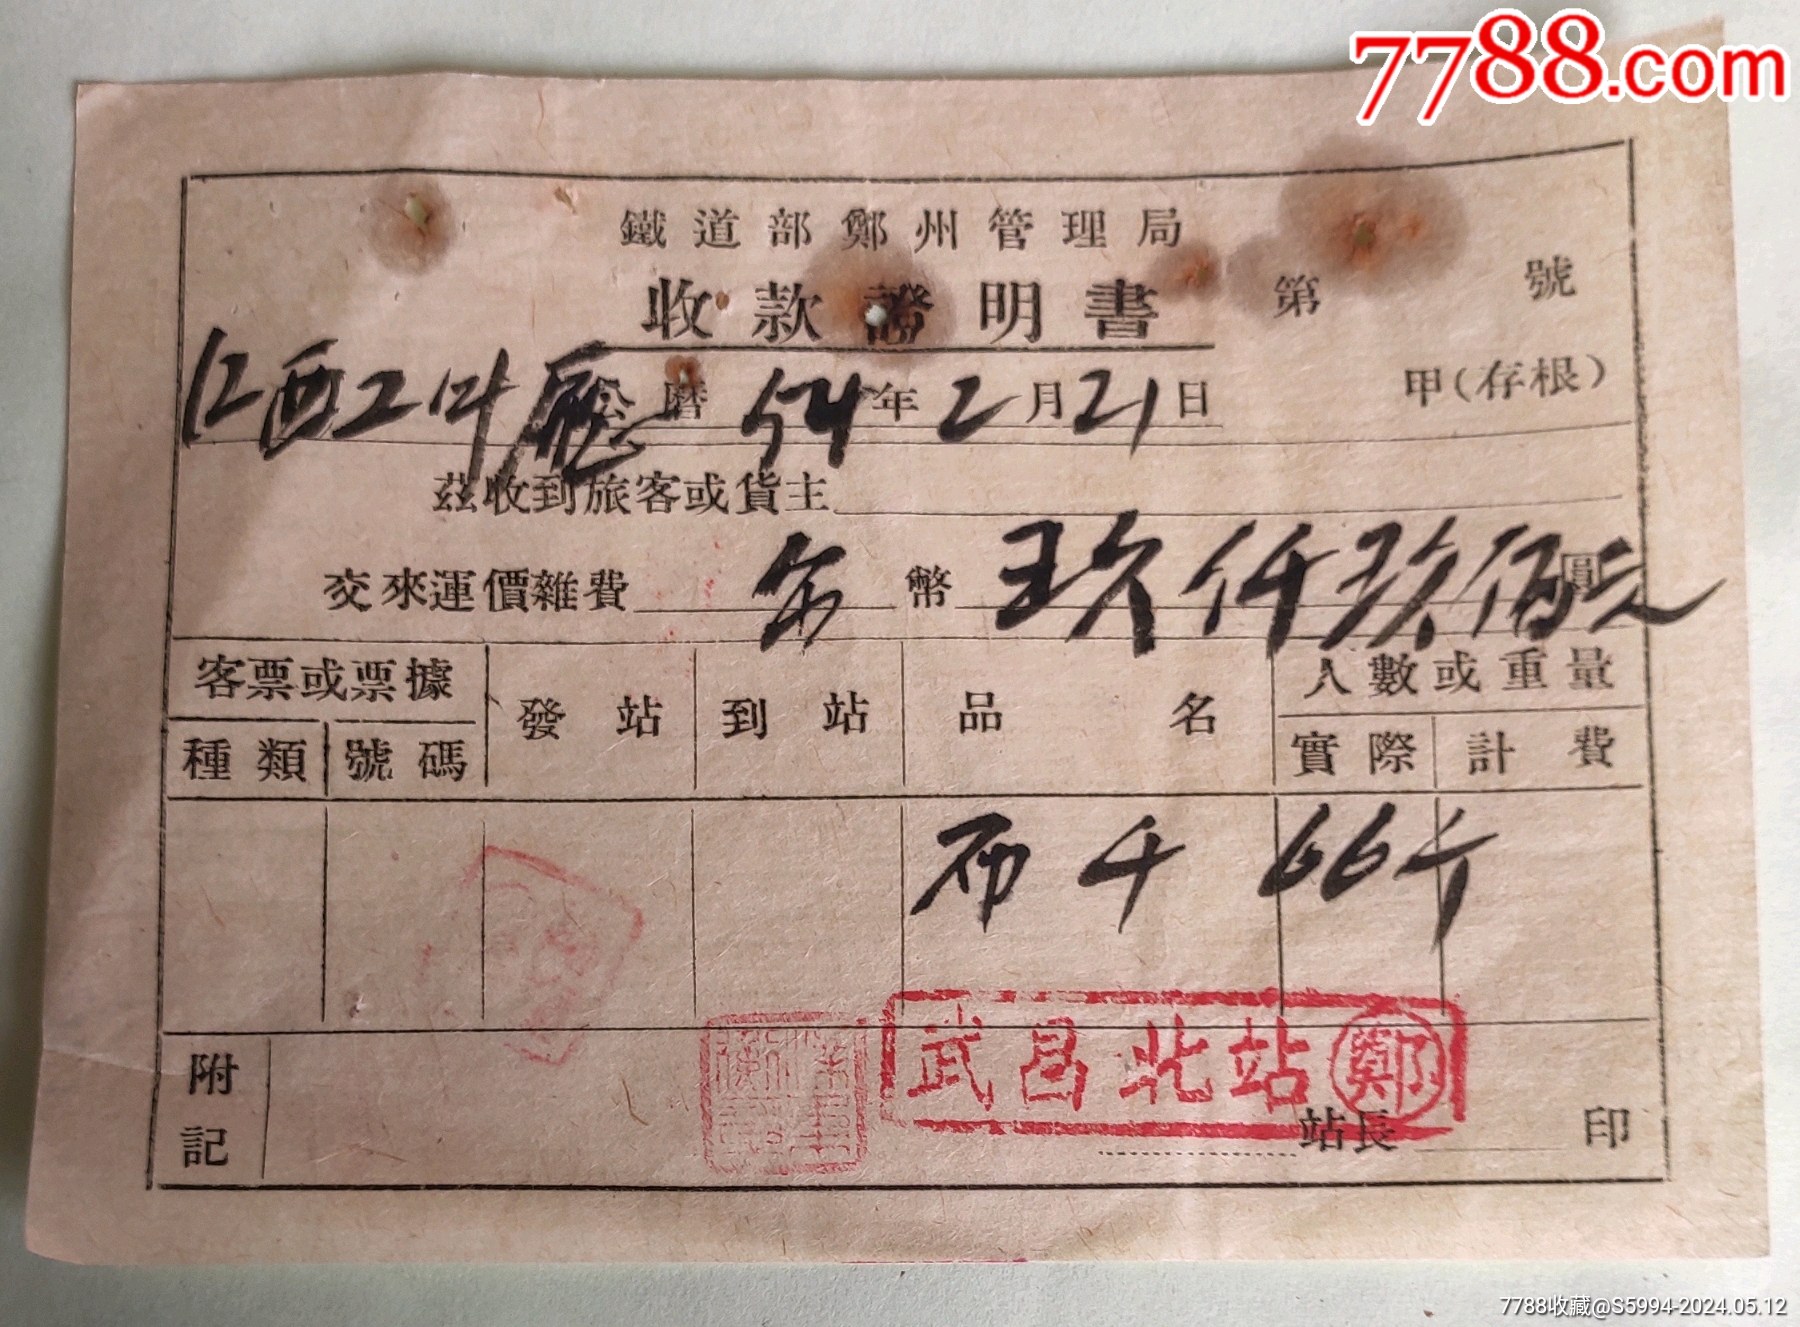 7788.com
鐵道部鄭州管理局
收款證明書
第 號
公曆 54年2月21日
甲(存根)
茲收到旅客或貨主
交來運價雜費 幣 玖仟玖佰元 圓
客票或票據 發站 到站 品名 人數或重量
種類 號碼 實際 計費
布 66斤
武昌北站 鄭
附記
站長 印
7788收藏@S5994-2024.05.12